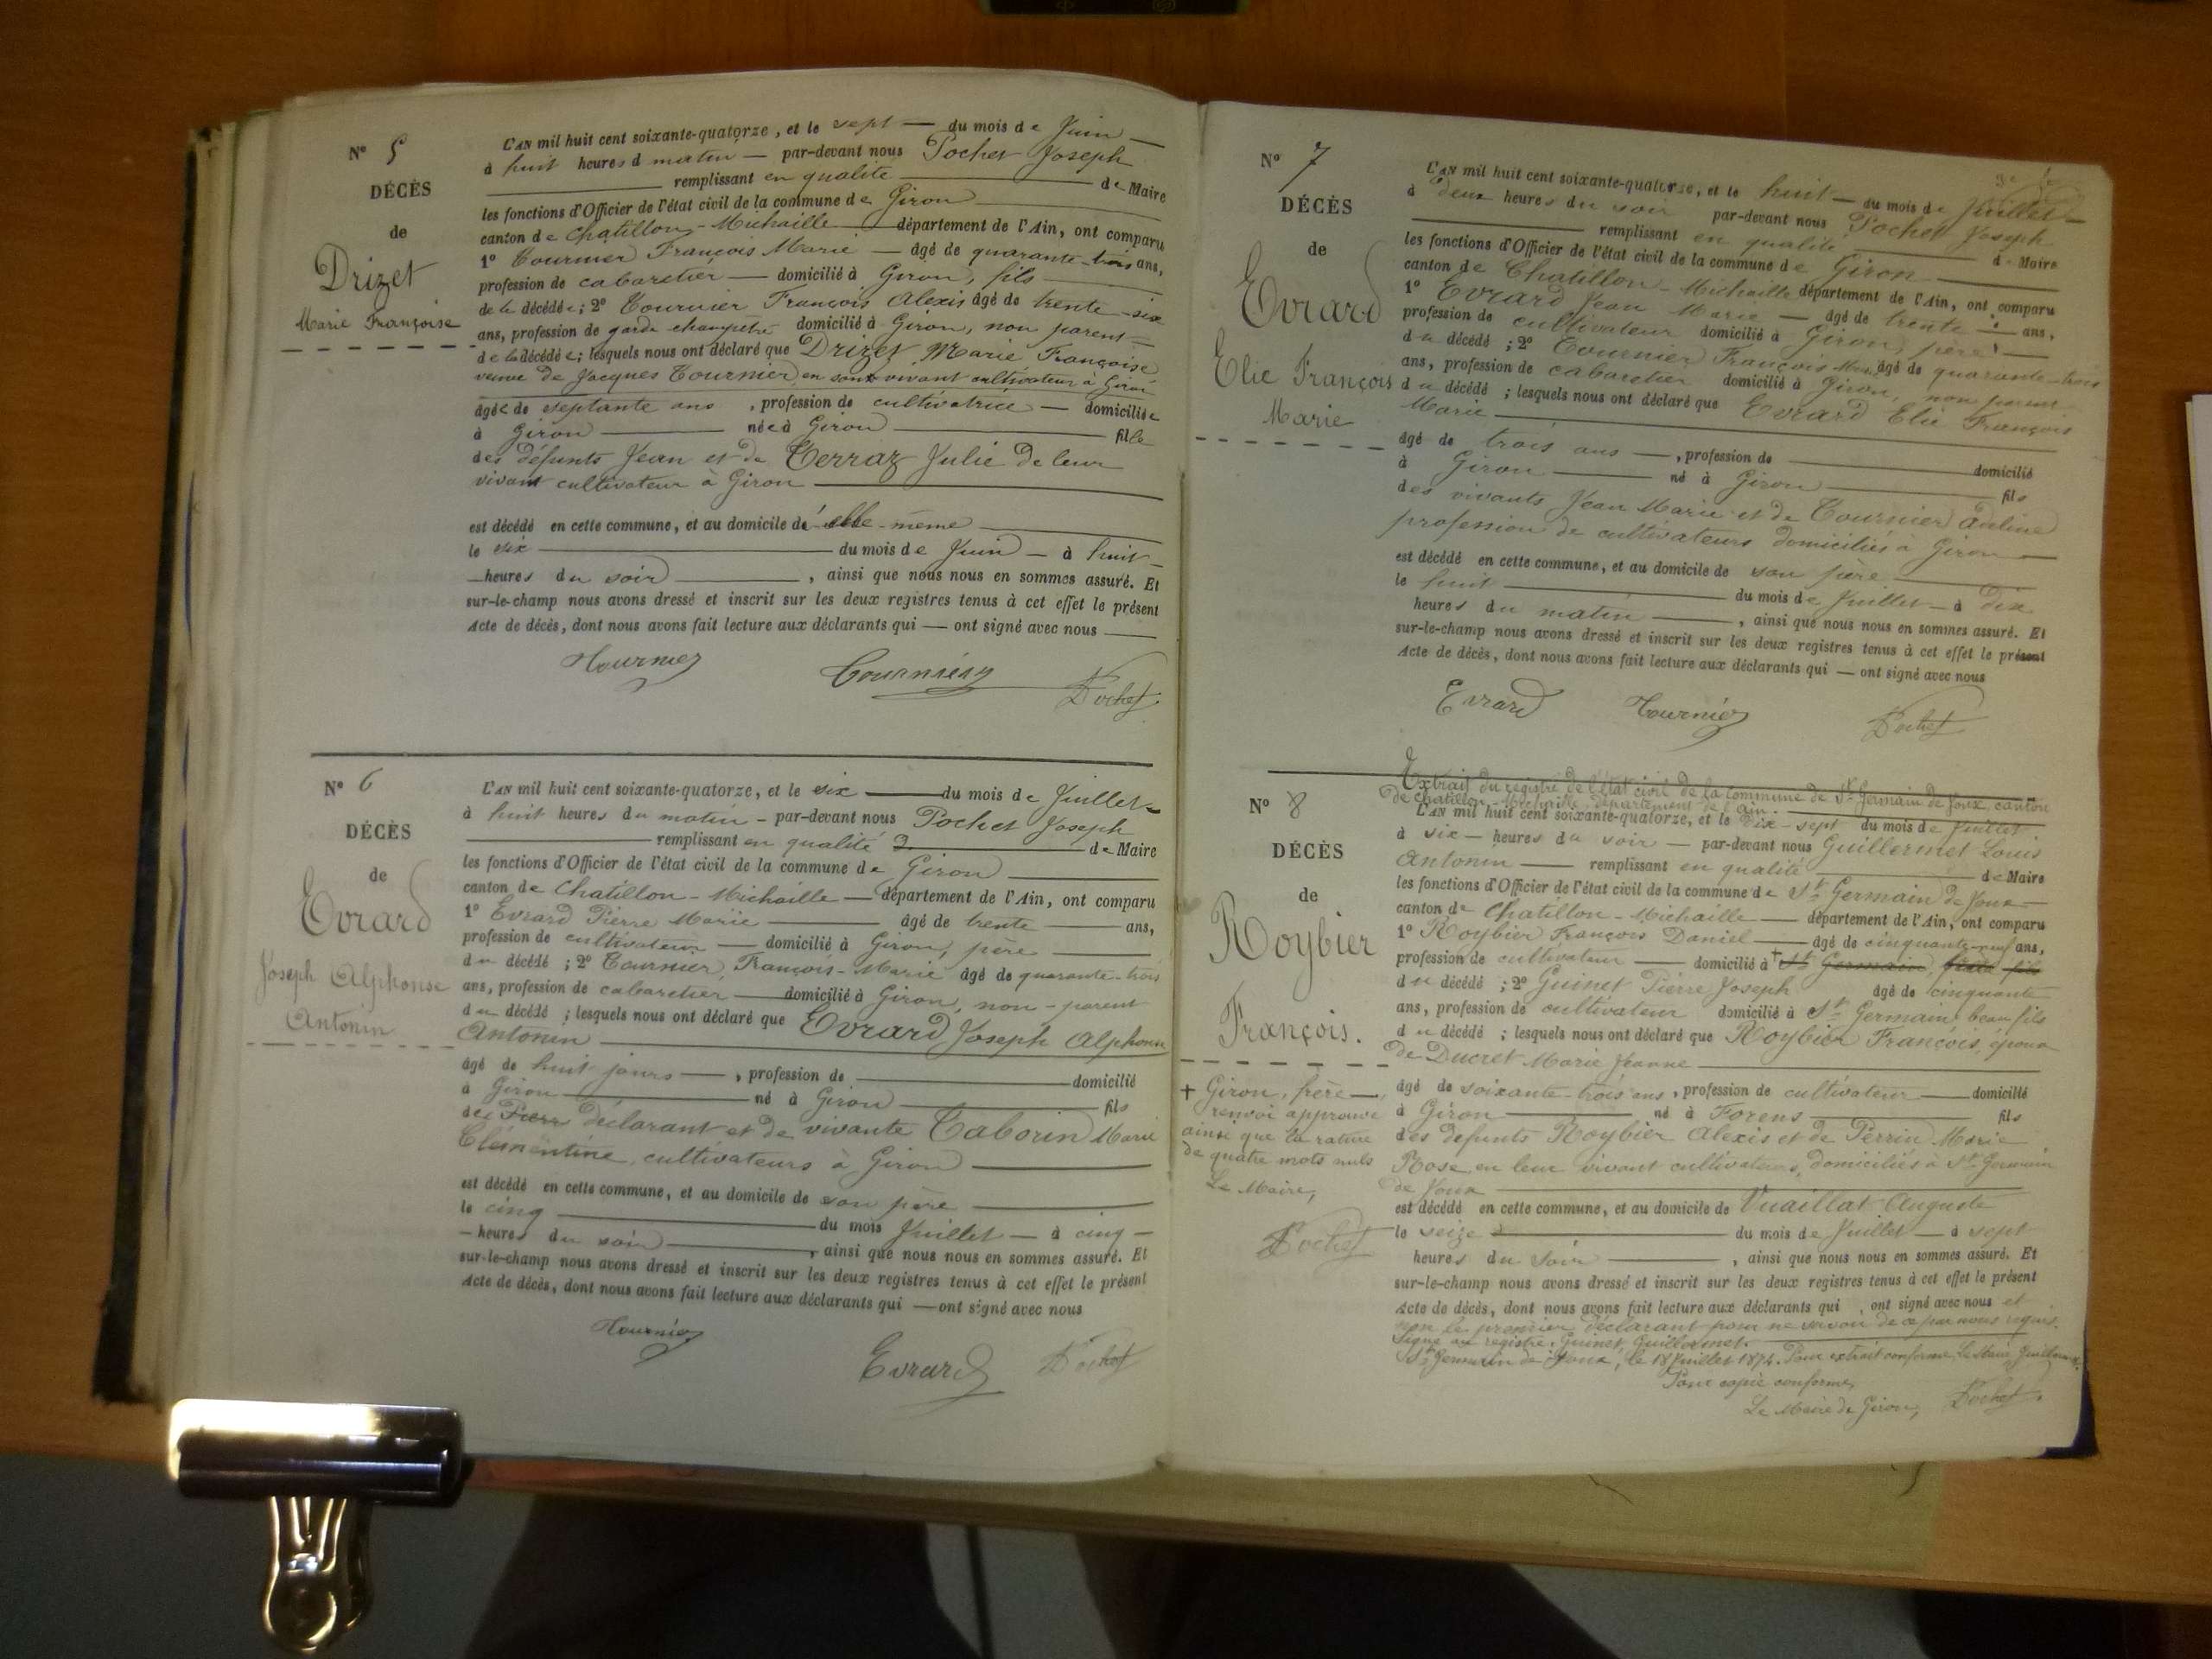 N° 5
DÉCÈS
de
Drizet
Marie Françoise
L'AN mil huit cent soixante-quatorze, et le sept — du mois de Juin —
à huit heures d matin — par-devant nous Pochet Joseph
remplissant en qualité — de Maire
les fonctions d'Officier de l'état civil de la commune de Giron
canton de Chatillon-Michaille — département de l'Ain, ont comparu
1° Tournier François Marie — âgé de quarante-trois ans,
profession de cabaretier — domicilié à Giron, fils
de la décédée; 2° Tournier François Alexis âgé de trente-six
ans, profession de garde champêtre domicilié à Giron, non parent
de la décédée; lesquels nous ont déclaré que Drizet Marie Françoise
veuve de Jacques Tournier en son vivant cultivateur à Giron
âgée de septante ans, profession de cultivatrice — domiciliée
à Giron — née à Giron — fille
des défunts Jean et de Terraz Julie de leur
vivant cultivateur à Giron
est décédé en cette commune, et au domicile d'elle-même
le six — du mois de Juin — à huit
heures du soir —, ainsi que nous nous en sommes assuré. Et
sur-le-champ nous avons dressé et inscrit sur les deux registres tenus à cet effet le présent
Acte de décès, dont nous avons fait lecture aux déclarants qui — ont signé avec nous —
Tournier Tournier Pochet
N° 6
DÉCÈS
de
Evrard
Joseph Alphonse
Antonin
L'AN mil huit cent soixante-quatorze, et le six — du mois de Juillet
à huit heures du matin — par-devant nous Pochet Joseph
remplissant en qualité — de Maire
les fonctions d'Officier de l'état civil de la commune de Giron
canton de Chatillon-Michaille — département de l'Ain, ont comparu
1° Evrard Pierre Marie — âgé de trente — ans,
profession de cultivateur — domicilié à Giron, père
du décédé; 2° Tournier, François-Marie âgé de quarante-trois
ans, profession de cabaretier — domicilié à Giron, non-parent
du décédé; lesquels nous ont déclaré que Evrard Joseph Alphonse
Antonin
âgé de huit jours —, profession de — domicilié
à Giron — né à Giron — fils
des Pierr déclarant et de vivante Taborin Marie
Clémentine, cultivateurs à Giron
est décédé en cette commune, et au domicile de son père
le cinq — du mois Juillet — à cinq —
heures du soir —, ainsi que nous nous en sommes assuré. Et
sur-le-champ nous avons dressé et inscrit sur les deux registres tenus à cet effet le présent
Acte de décès, dont nous avons fait lecture aux déclarants qui — ont signé avec nous
Tournier Evrard Pochet
N° 7
DÉCÈS
de
Evrard
Elie François
Marie
L'AN mil huit cent soixante-quatorze, et le huit — du mois de Juillet —
à deux heures du soir par-devant nous Pochet Joseph
remplissant en qualité — de Maire
les fonctions d'Officier de l'état civil de la commune de Giron
canton de Chatillon-Michaille département de l'Ain, ont comparu
1° Evrard Jean Marie — âgé de trente — ans,
profession de cultivateur domicilié à Giron, père
du décédé; 2° Tournier François Marie âgé de quarante-trois
ans, profession de cabaretier domicilié à Giron, non parent
du décédé; lesquels nous ont déclaré que Evrard Elie François
Marie
âgé de trois ans —, profession de — domicilié
à Giron — né à Giron — fils
des vivants Jean Marie et de Tournier Adeline
profession de cultivateurs domiciliés à Giron —
est décédé en cette commune, et au domicile de son père
le huit — du mois de Juillet — à dix
heures du matin —, ainsi que nous nous en sommes assuré. Et
sur-le-champ nous avons dressé et inscrit sur les deux registres tenus à cet effet le présent
Acte de décès, dont nous avons fait lecture aux déclarants qui — ont signé avec nous
Evrard Tournier Pochet
N° 8
DÉCÈS
de
Roybier
François.
+ Giron, frère —,
renvoi approuvé
ainsi que la rature
de quatre mots nuls
Le Maire,
Pochet
Extrait du registre de l'état civil de la commune de St Germain de Joux, canton
de Chatillon-Michaille, département de l'Ain
L'AN mil huit cent soixante-quatorze, et le dix-sept du mois de Juillet
à six — heures du soir — par-devant nous Guillermet Louis
Antonin — remplissant en qualité — de Maire
les fonctions d'Officier de l'état civil de la commune de St Germain de Joux —
canton de Chatillon-Michaille — département de l'Ain, ont comparu
1° Roybier François Daniel — âgé de cinquante-neuf ans,
profession de cultivateur — domicilié à + St Germain, fils
du décédé; 2° Guinet Pierre Joseph âgé de cinquante
ans, profession de cultivateur domicilié à St Germain, beau fils
du décédé; lesquels nous ont déclaré que Roybier François, époux
de Ducret Marie Jeanne
âgé de soixante-trois ans, profession de cultivateur — domicilié
à Giron — né à Forens — fils
des défunts Roybier Alexis et de Perrin Marie
Rose, en leur vivant cultivateurs, domiciliés à St Germain
de Joux
est décédé en cette commune, et au domicile de Vuaillat Auguste
le seize — du mois de Juillet — à sept
heures du soir —, ainsi que nous nous en sommes assuré. Et
sur-le-champ nous avons dressé et inscrit sur les deux registres tenus à cet effet le présent
Acte de décès, dont nous avons fait lecture aux déclarants qui, ont signé avec nous et
non le premier déclarant pour ne savoir de ce par nous requis.
Signé au registre: Guinet, Guillermet.
St Germain de Joux, le 18 Juillet 1874. Pour extrait conforme, Le Maire Guillermet
Pour copie conforme,
Le Maire de Giron, Pochet